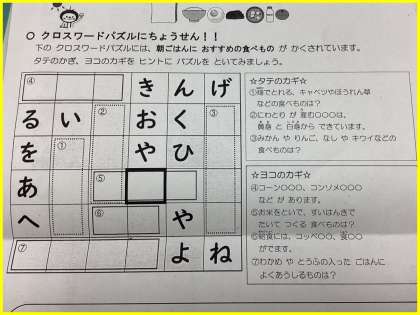 ○ クロスワードパズルにちょうせん!!
下の クロスワードパズルには、朝ごはんに おすすめの食べもの が かくされています。
タテのかぎ、ヨコのカギを ヒントに パズルを といてみましょう。
④ き ん げ
る い ② お く ③
を ① や ひ
あ ⑤
へ ⑥ や
⑦ よ ね
☆タテのカギ☆
①畑でとれる、キャベツやほうれん草
などの食べものは?
②にわとり が 産む○○○は、
黄身 と 白身から できています。
③みかん や りんご、なし や キウイなどの
食べものは?
☆ヨコのカギ☆
④コーン○○○、コンソメ○○○
など が あります。
⑤お米をといで、すいはんきで
たいて つくる 食べものは?
⑥給食には、コッペ○○、食○○
がでます。
⑦わかめ や とうふの入った ごはんに
よくあうしるものは?